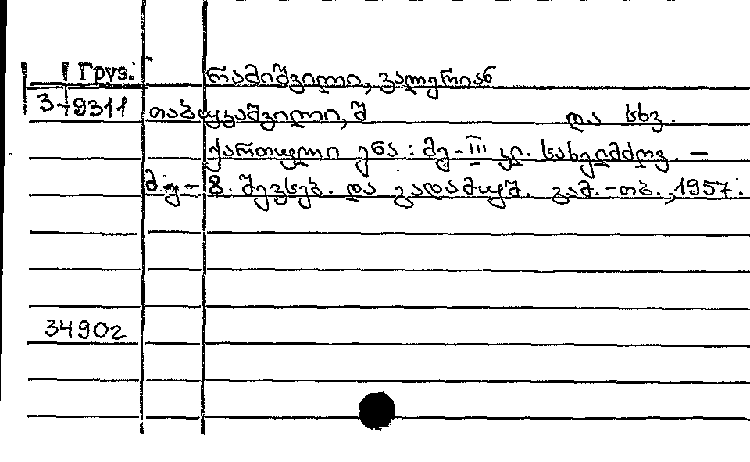 Груз. რამიშვილი, ვალერიან
3-9311 თაბუკაშვილი, შ და სხვ.
ქართული ენა : მე-III კლ. სახელმძღვ. –
მე – 8. შევსებ. და გადამუშ. გამ. – თბ., 1957.
34902